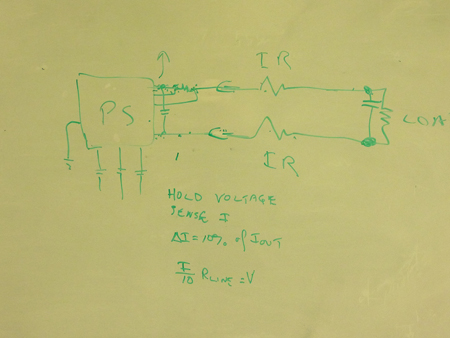 IR
PS
LOAD
IR
HOLD VOLTAGE
SENSE I
ΔI = 10% of IOUT
I/10 RLINE = V